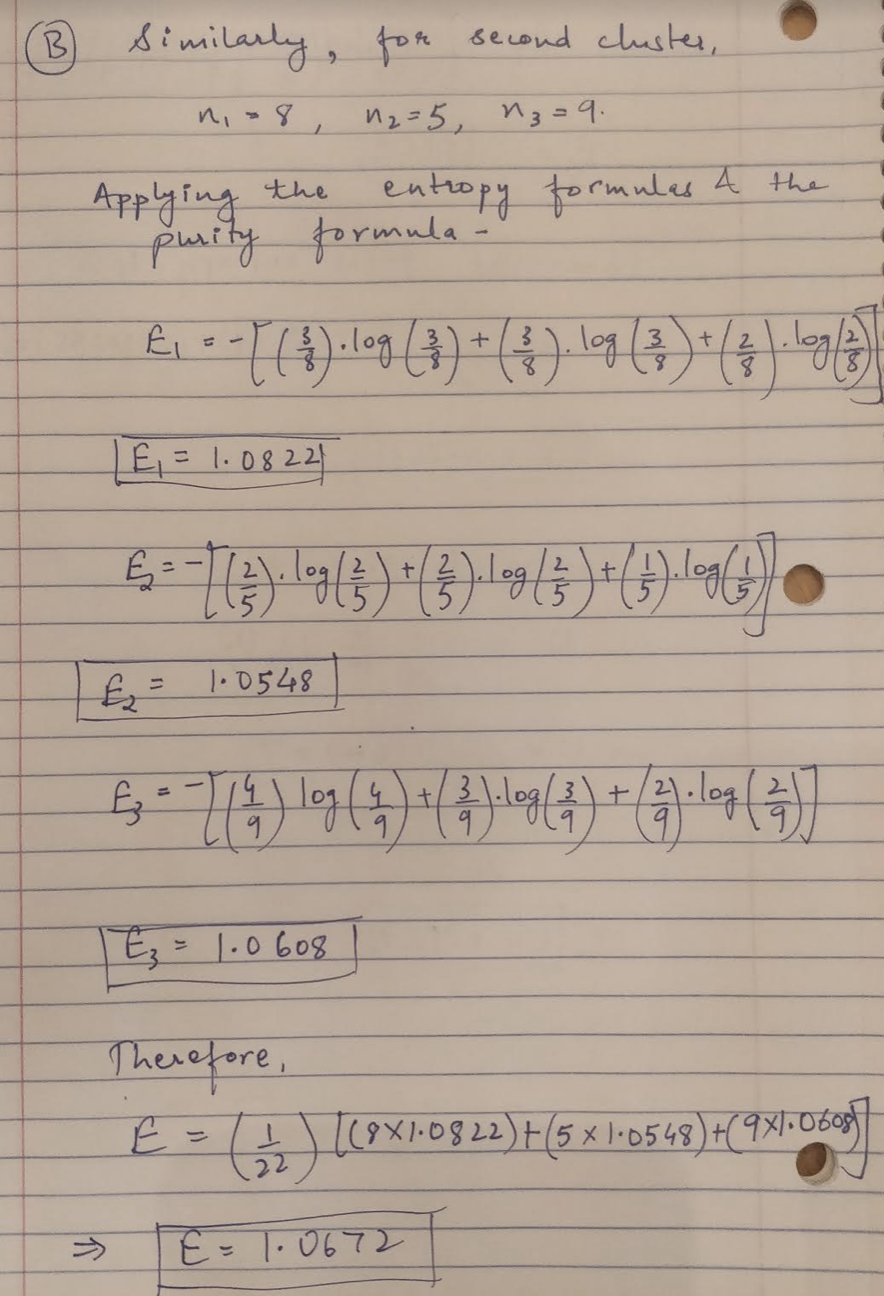 (B) Similarly, for second cluster,
n₁ = 8, n₂ = 5, n₃ = 9.
Applying the entropy formulas & the
purity formula -
E₁ = -[(3/8).log(3/8) + (3/8).log(3/8) + (2/8).log(2/8)]
E₁ = 1.0822
E₂ = -[(2/5).log(2/5) + (2/5).log(2/5) + (1/5).log(1/5)]
E₂ = 1.0548
E₃ = -[(4/9) log(4/9) + (3/9).log(3/9) + (2/9).log(2/9)]
E₃ = 1.0608
Therefore,
E = (1/22) [(8×1.0822)+(5×1.0548)+(9×1.0608)]
⇒ E = 1.0672